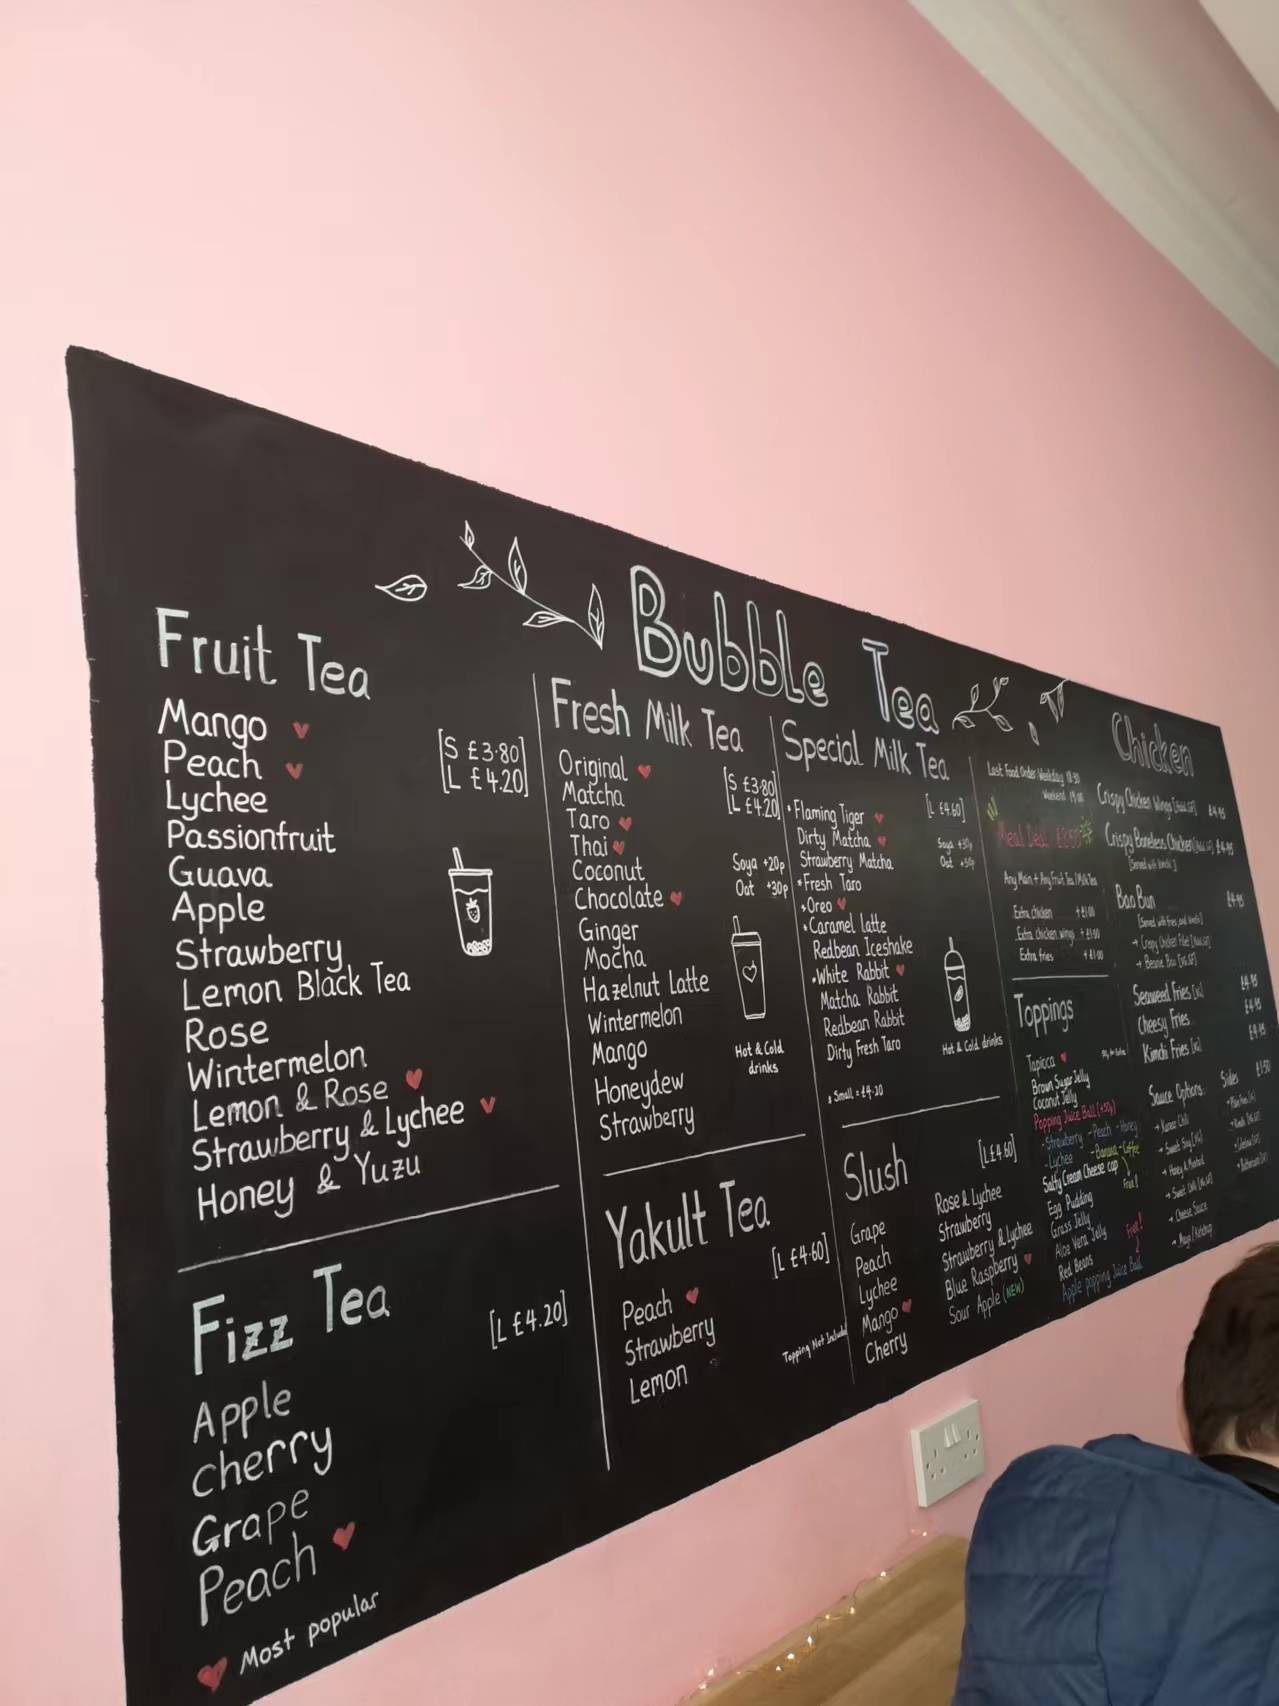 Bubble Tea
Fruit Tea
[S £3.80]
[L £4.20]
Mango
Peach
Lychee
Passionfruit
Guava
Apple
Strawberry
Lemon Black Tea
Rose
Wintermelon
Lemon & Rose
Strawberry & Lychee
Honey & Yuzu
Fizz Tea
[L £4.20]
Apple
Cherry
Grape
Peach
Most popular
Fresh Milk Tea
[S £3.80]
[L £4.20]
Original
Matcha
Taro
Thai
Coconut
Chocolate
Ginger
Mocha
Hazelnut Latte
Wintermelon
Mango
Honeydew
Strawberry
Soya +20p
Oat +30p
Hot & Cold
drinks
Yakult Tea
[L £4.60]
Peach
Strawberry
Lemon
Topping Not Included
Special Milk Tea
[L £4.60]
Flaming Tiger
Dirty Matcha
Strawberry Matcha
*Fresh Taro
*Oreo
*Caramel latte
Redbean Iceshake
*White Rabbit
Matcha Rabbit
Redbean Rabbit
Dirty Fresh Taro
Soya
Oat
Hot & Cold drinks
Small = £4.20
Slush
[L £4.60]
Grape
Peach
Lychee
Mango
Cherry
Rose & Lychee
Strawberry
Strawberry & Lychee
Blue Raspberry
Sour Apple (NEW)
Last Food Order Weekday
Weekend
Meal Deal
Any Main + Any Fruit Tea / Milk Tea
Extra chicken +£1.00
Extra chicken wings +£1.00
Extra fries +£1.00
Toppings
Tapioca
Brown Sugar Jelly
Coconut Jelly
Popping Juice Ball (+50p)
-Strawberry -Peach -Honey
-Lychee -Banana -Coffee
Salty Cream Cheese cap
Egg Pudding
Grass Jelly
Aloe Vera Jelly
Red Beans
Apple popping Juice Ball
Free!
Free!
Chicken
Crispy Chicken Wings £4.95
Crispy Boneless Chicken £4.95
Bao Bun £4.95
Seaweed Fries £4.95
Cheesy Fries £4.95
Kimchi Fries £4.95
Sauce Options
→ Korean Chilli
→ Honey & Mustard
→ Cheese Sauce
→ Mayo / Ketchup
Sides